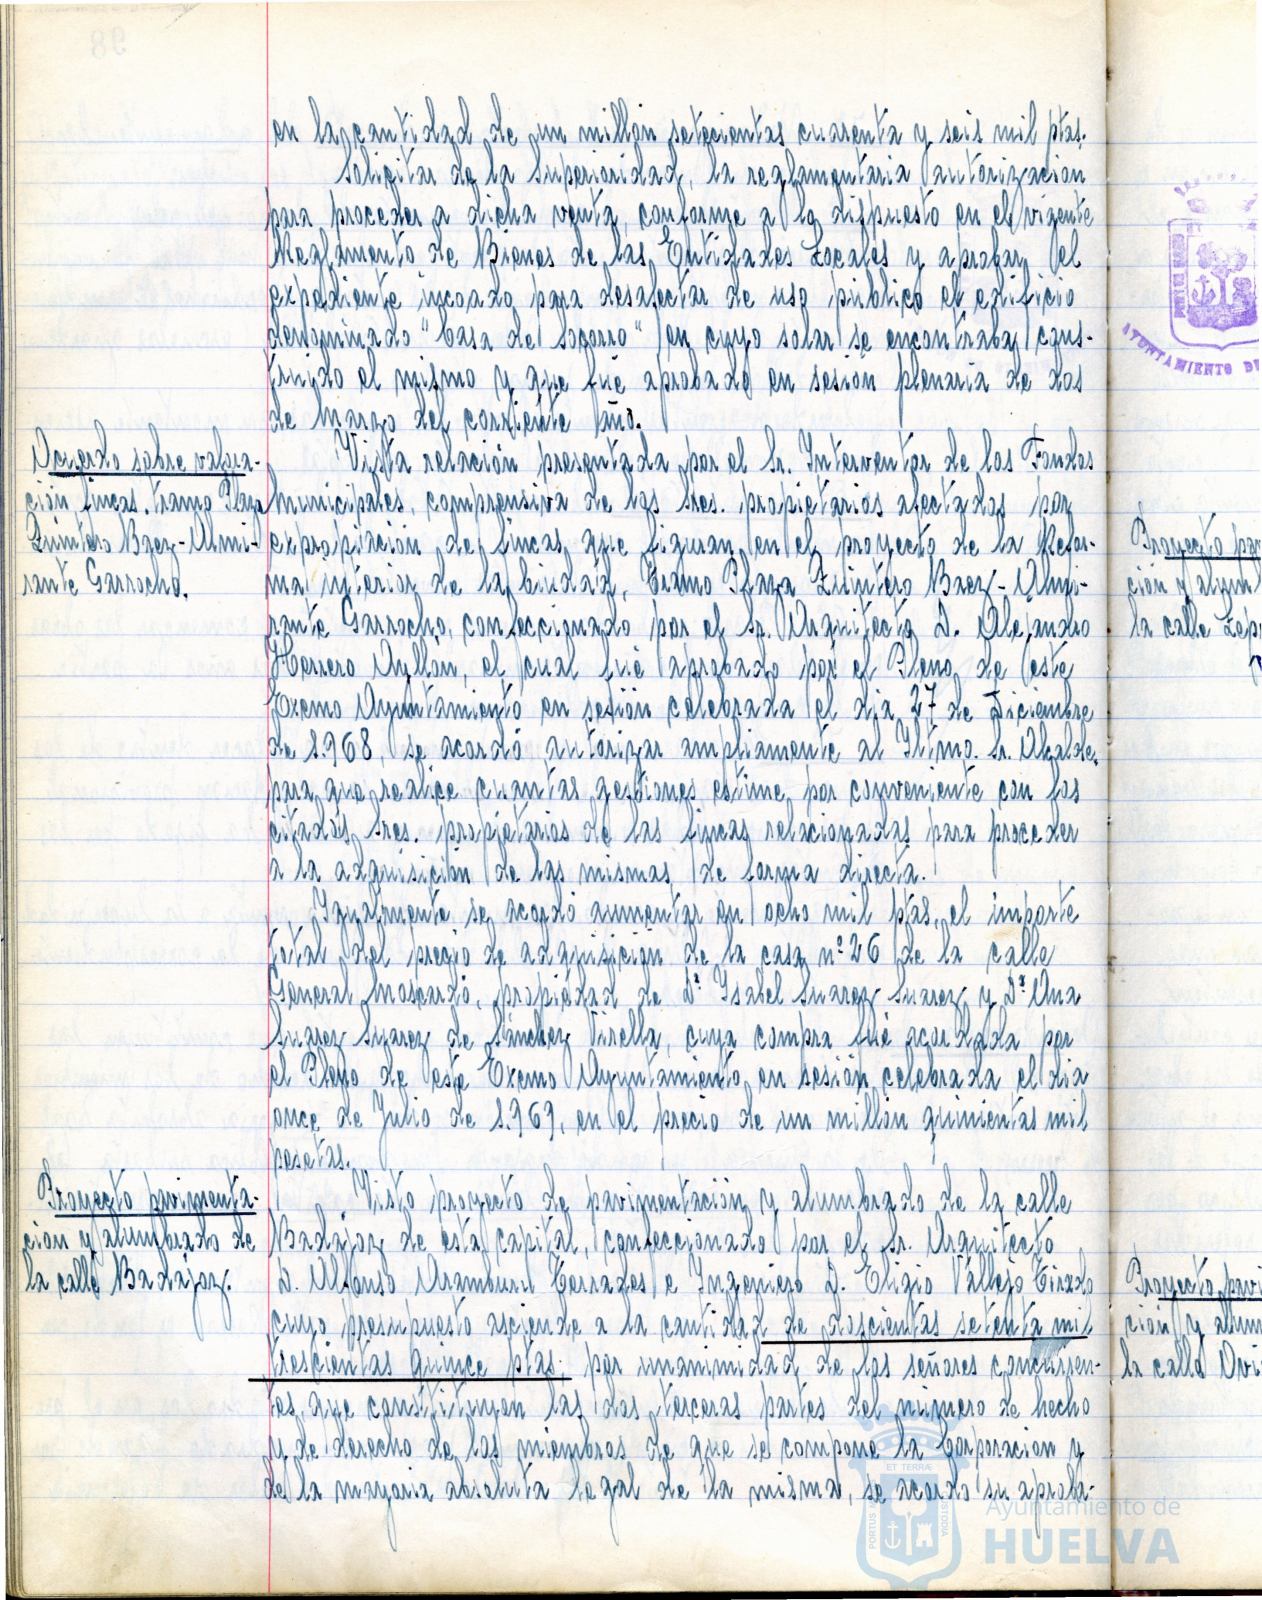 en la cantidad de un millón setecientas cuarenta y seis mil ptas.
Solicitar de la Superioridad, la reglamentaria autorización
para proceder a dicha venta, conforme a lo dispuesto en el vigente
Reglamento de Bienes de las Entidades Locales y aprobar el
expediente incoado para desafectar de uso público el edificio
denominado "Casa de Socorro" en cuyo solar se encontraba cons-
truido el mismo y que fué aprobado en sesión plenaria de dos
de Marzo del corriente año.
Acuerdo sobre valora-
ción fincas. tramo Plaza
Quintero Baez-Almi-
rante Garrocho.
Vista relación presentada por el Sr. Interventor de los Fondos
Municipales, comprensiva de los Sres. propietarios afectados por
expropiación de fincas que figuran en el proyecto de la Refor-
ma interior de la Ciudad, Tramo Plaza Quintero Baez-Almi-
rante Garrocho, confeccionado por el Sr. Arquitecto D. Alejandro
Herrero Ayllón, el cual fué aprobado por el Pleno de este
Excmo Ayuntamiento en sesión celebrada el dia 27 de Diciembre
de 1.968, se acordó autorizar ampliamente al Iltmo. Sr. Alcalde,
para que realice cuantas gestiones estime por conveniente con los
citados Sres. propietarios de las fincas relacionadas para proceder
a la adquisición de las mismas de forma directa.
Igualmente se acordó aumentar en ocho mil ptas, el importe
total del precio de adquisición de la casa nº 26 de la calle
General Moscardó, propiedad de Dª Isabel Suarez Suarez y Dª Ana
Suarez Suarez de Sánchez Virella, cuya compra fué acordada por
el Pleno de este Excmo Ayuntamiento en sesión celebrada el dia
once de Julio de 1.969, en el precio de un millón quinientas mil
pesetas.
Proyecto pavimenta-
ción y alumbrado de
la calle Badajoz.
Visto proyecto de pavimentación y alumbrado de la calle
Badajoz de esta capital, confeccionado por el Sr. Arquitecto
D. Alfonso Aramburu Terrades e Ingeniero D. Eligio Vallejo Tirado
cuyo presupuesto asciende a la cantidad de doscientas setenta mil
trescientas quince ptas. por unanimidad de los señores concurren-
tes, que constituyen las dos terceras partes del número de hecho
y de derecho de los miembros de que se compone la Corporacion y
de la mayoria absoluta legal de la misma, se acordó su aproba-
AYUNTAMIENTO DE
Proyecto pav
ción y aluml
la calle Lep
Proyecto pavi
ción y alum
la calle Ovi
Ayuntamiento de
HUELVA